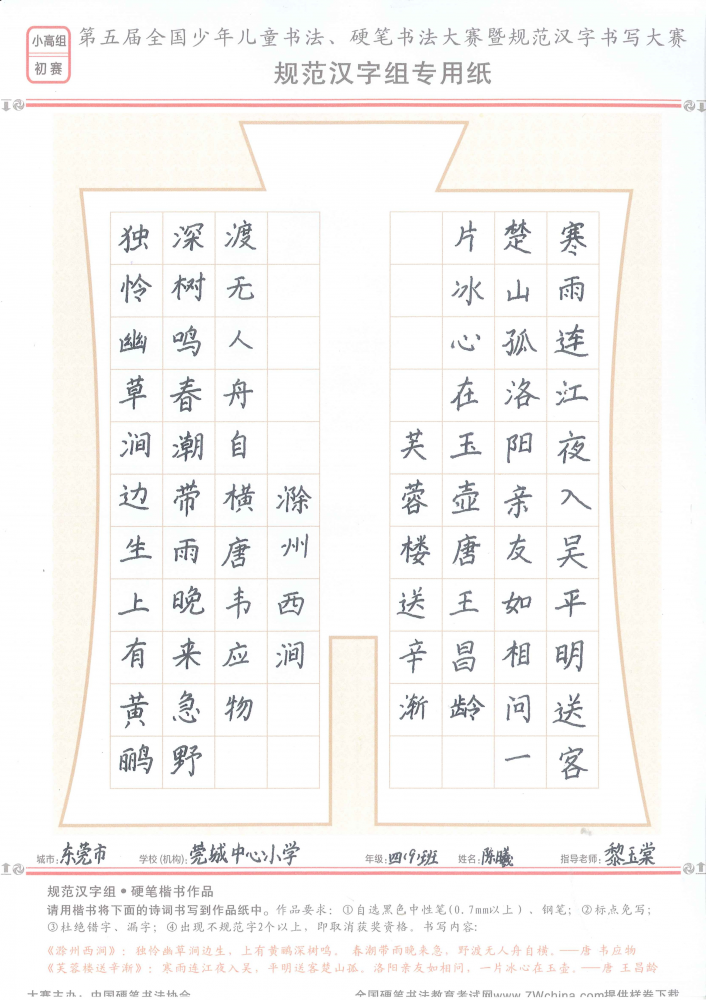 小高组
初赛
第五届全国少年儿童书法、硬笔书法大赛暨规范汉字书写大赛
规范汉字组专用纸
寒雨连江夜入吴平明送客
楚山孤洛阳亲友如相问一
片冰心在玉壶唐王昌龄
芙蓉楼送辛渐
独怜幽草涧边生上有黄鹂
深树鸣春潮带雨晚来急野
渡无人舟自横唐韦应物
滁州西涧
城市：东莞市 学校(机构)：莞城中心小学 年级：四(9)班 姓名：陈曦 指导老师：黎玉棠
规范汉字组•硬笔楷书作品
请用楷书将下面的诗词书写到作品纸中。作品要求：①自选黑色中性笔(0.7mm以上)、钢笔；②标点免写；
③杜绝错字、漏字；④出现不规范字2个以上，即取消获奖资格。书写内容：
《滁州西涧》：独怜幽草涧边生，上有黄鹂深树鸣。 春潮带雨晚来急，野渡无人舟自横。——唐 韦应物
《芙蓉楼送辛渐》：寒雨连江夜入吴，平明送客楚山孤。洛阳亲友如相问，一片冰心在玉壶。——唐 王昌龄
大赛主办：中国硬笔书法协会 全国硬笔书法教育考试网www.7Wchina.com提供样卷下载